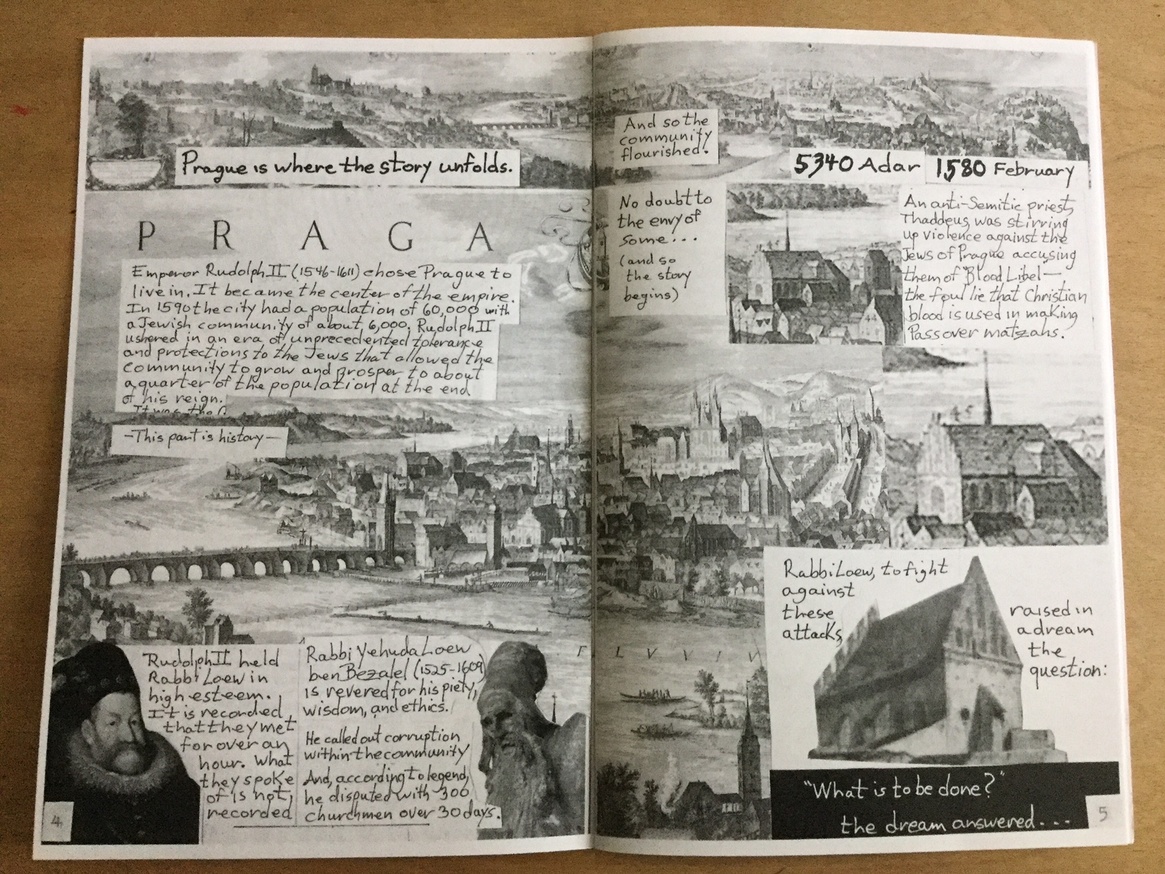 Prague is where the story unfolds.
PRAGA
Emperor Rudolph II (1546-1611) chose Prague to
live in. It became the center of the empire.
In 1590 the city had a population of 60,000 with
a Jewish community of about 6,000, Rudolph II
ushered in an era of unprecedented tolerance
and protections to the Jews that allowed the
community to grow and prosper to about
a quarter of the population at the end
of his reign.
It was then
-This part is history-
Rudolph II held
Rabbi Loew in
high esteem.
It is recorded
that they met
for over an
hour. What
they spoke
of is not
recorded
Rabbi Yehuda Loew
ben Bezalel (1525-1609)
is revered for his piety,
wisdom, and ethics.
He called out corruption
within the community
And, according to legend,
he disputed with 300
churchmen over 30 days.
4
And so the
community
flourished.
5340 Adar 1580 February
No doubt to
the envy of
some...
(and so
the story
begins)
An anti-Semitic priest,
Thaddeus was stirring
up violence against the
Jews of Prague accusing
them of Blood Libel—
the foul lie that Christian
blood is used in making
Passover matzahs.
FLVVIV
Rabbi Loew, to fight
against
these
attacks,
raised in
a dream
the
question:
"What is to be done?"
the dream answered...
5